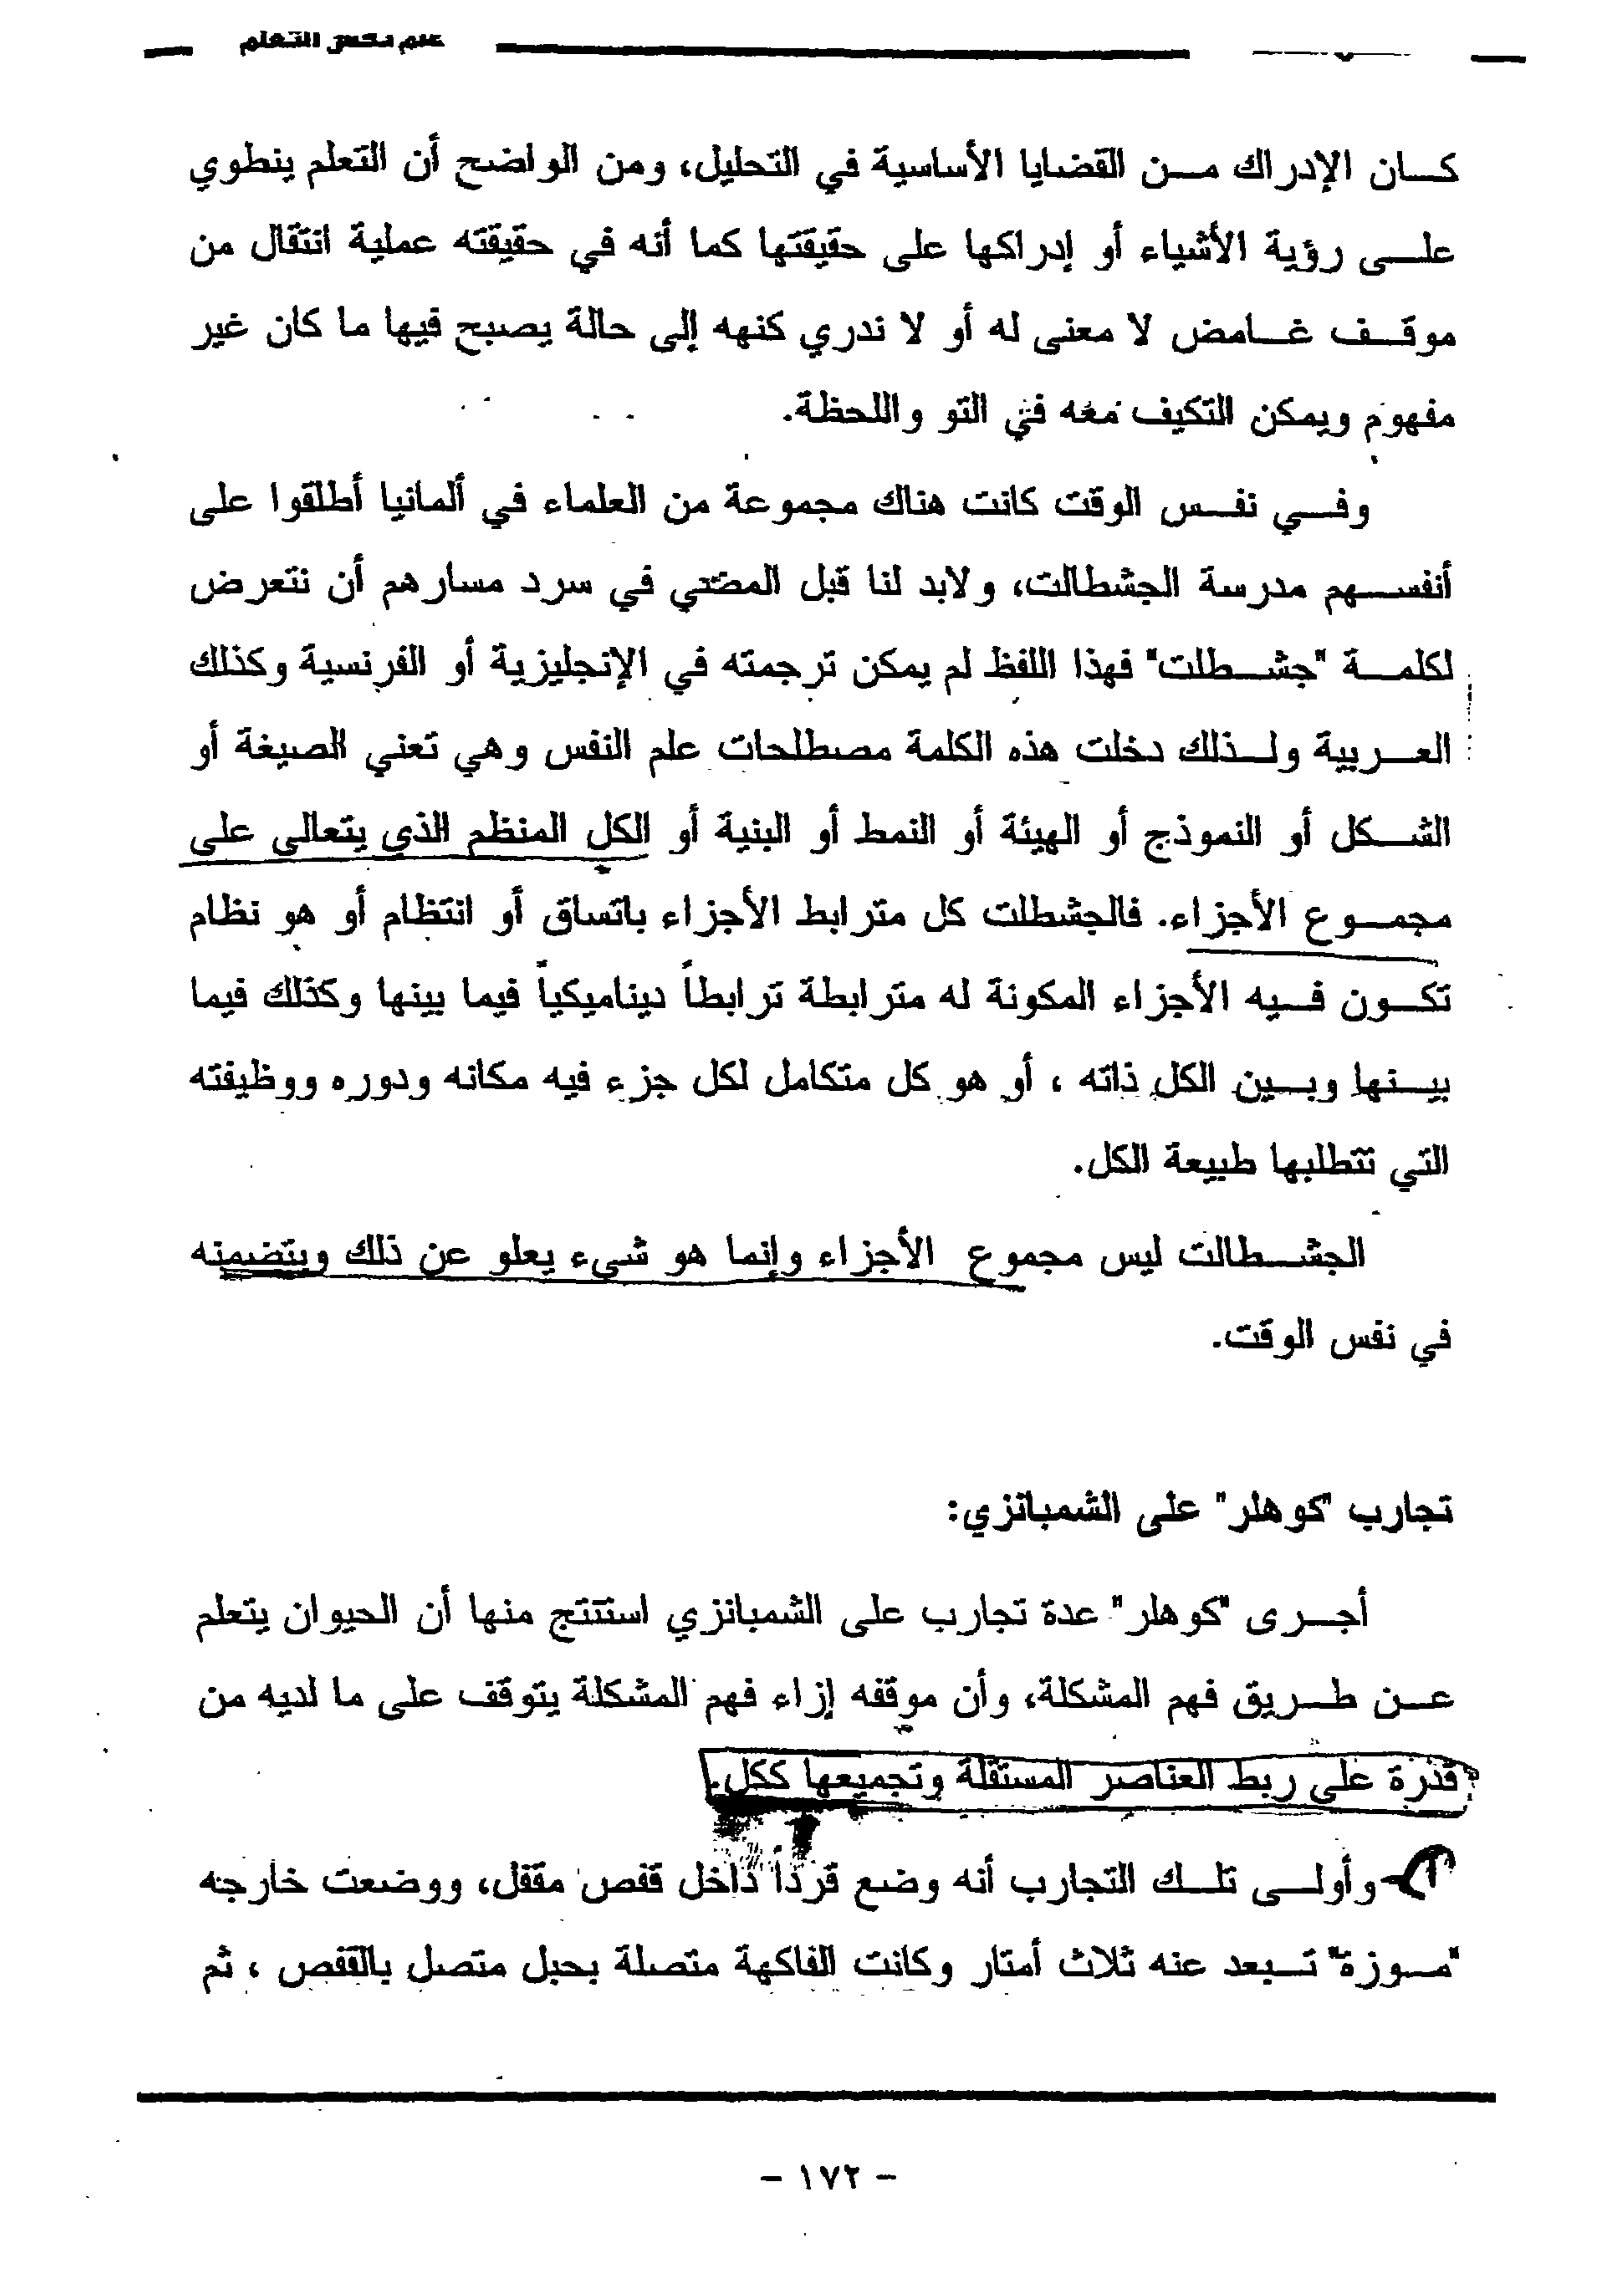 علم نفس التعلم
كان الإدراك من القضايا الأساسية في التحليل، ومن الواضح أن التعلم ينطوي
على رؤية الأشياء أو إدراكها على حقيقتها كما أنه في حقيقته عملية انتقال من
موقف غامض لا معنى له أو لا ندري كنهه إلى حالة يصبح فيها ما كان غير
مفهوم ويمكن التكيف معه في التو واللحظة.
وفي نفس الوقت كانت هناك مجموعة من العلماء في ألمانيا أطلقوا على
أنفسهم مدرسة الجشطالت، ولابد لنا قبل المضي في سرد مسارهم أن نتعرض
لكلمة "جشطلت" فهذا اللفظ لم يمكن ترجمته في الإنجليزية أو الفرنسية وكذلك
العربية ولذلك دخلت هذه الكلمة مصطلحات علم النفس وهي تعني الصيغة أو
الشكل أو النموذج أو الهيئة أو النمط أو البنية أو الكل المنظم الذي يتعالى على
مجموع الأجزاء. فالجشطلت كل مترابط الأجزاء باتساق أو انتظام أو هو نظام
تكون فيه الأجزاء المكونة له مترابطة ترابطاً ديناميكياً فيما بينها وكذلك فيما
بينها وبين الكل ذاته ، أو هو كل متكامل لكل جزء فيه مكانه ودوره ووظيفته
التي تتطلبها طبيعة الكل.
الجشطالت ليس مجموع الأجزاء وإنما هو شيء يعلو عن ذلك ويتضمنه
في نفس الوقت.
تجارب "كوهلر" على الشمبانزي:
أجرى "كوهلر" عدة تجارب على الشمبانزي استنتج منها أن الحيوان يتعلم
عن طريق فهم المشكلة، وأن موقفه إزاء فهم المشكلة يتوقف على ما لديه من
قدرة على ربط العناصر المستقلة وتجميعها ككل.
وأولى تلك التجارب أنه وضع قرداً داخل قفص مقفل، ووضعت خارجه
"موزة" تبعد عنه ثلاث أمتار وكانت الفاكهة متصلة بحبل متصل بالقفص ، ثم
- ١٧٢ -